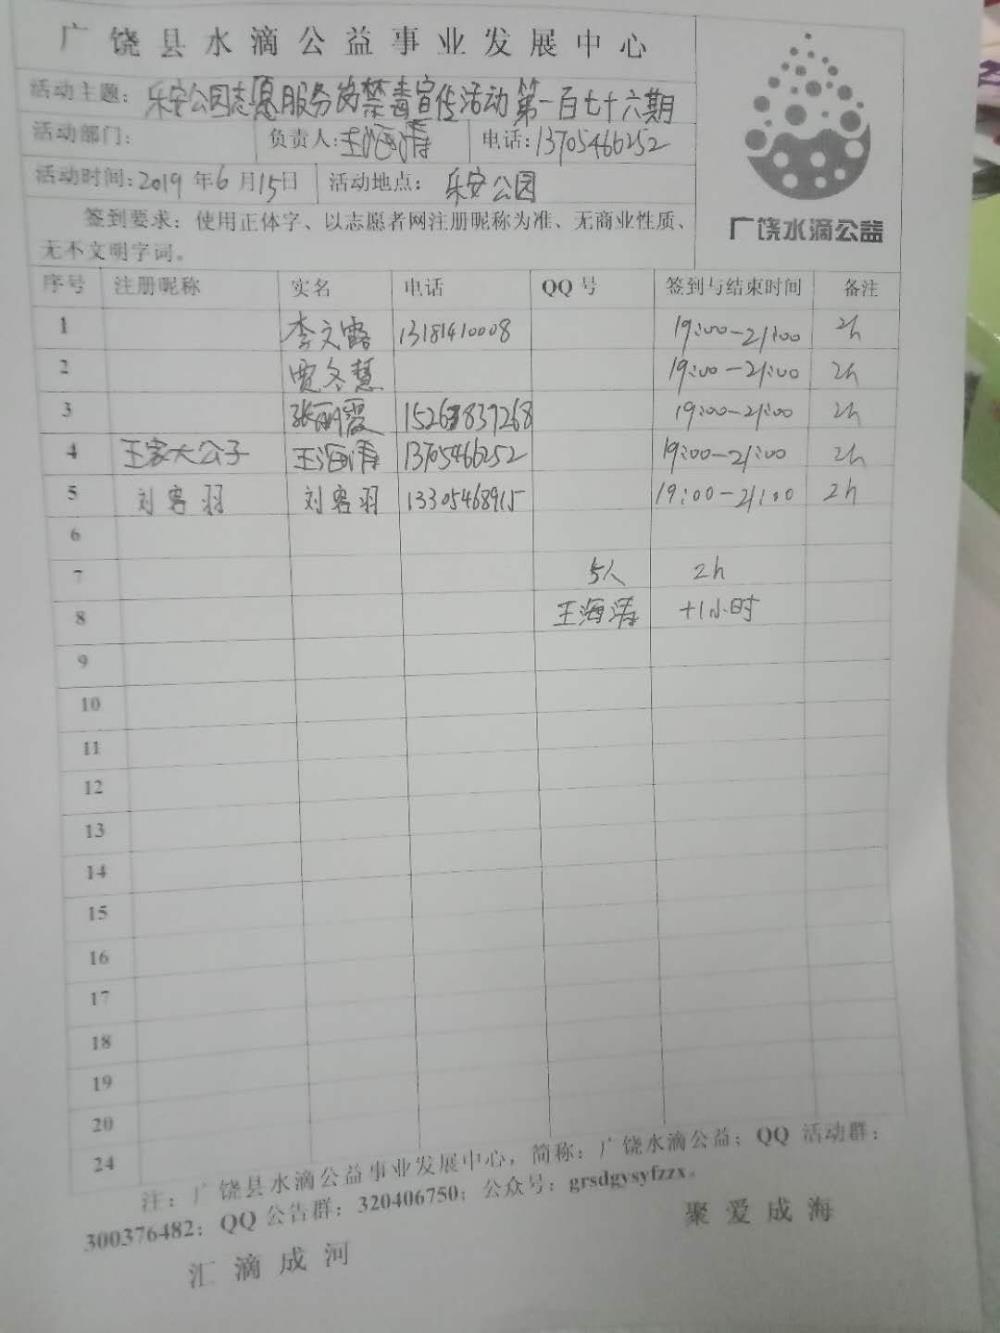 广饶县水滴公益事业发展中心
活动主题：乐安公园志愿服务岗禁毒宣传活动第一百七十六期
活动部门： 负责人：王海涛 电话：13705466252
活动时间：2019年6月15日 活动地点：乐安公园
签到要求：使用正体字、以志愿者网注册昵称为准、无商业性质、
无不文明字词。
广饶水滴公益
序号 注册昵称 实名 电话 QQ号 签到与结束时间 备注
1 李文露 13181410008 19:00-21:00 2h
2 贾冬慧 19:00-21:00 2h
3 张丽霞 15263837268 19:00-21:00 2h
4 王家大公子 王海涛 13705466252 19:00-21:00 2h
5 刘客羽 刘客羽 13305468915 19:00-21:00 2h
6
7 5人 2h
8 王海涛 +1小时
9
10
11
12
13
14
15
16
17
18
19
20
24
注：广饶县水滴公益事业发展中心，简称：广饶水滴公益；QQ 活动群：
300376482；QQ公告群：320406750；公众号：grsdgysyfzzx。
汇滴成河 聚爱成海